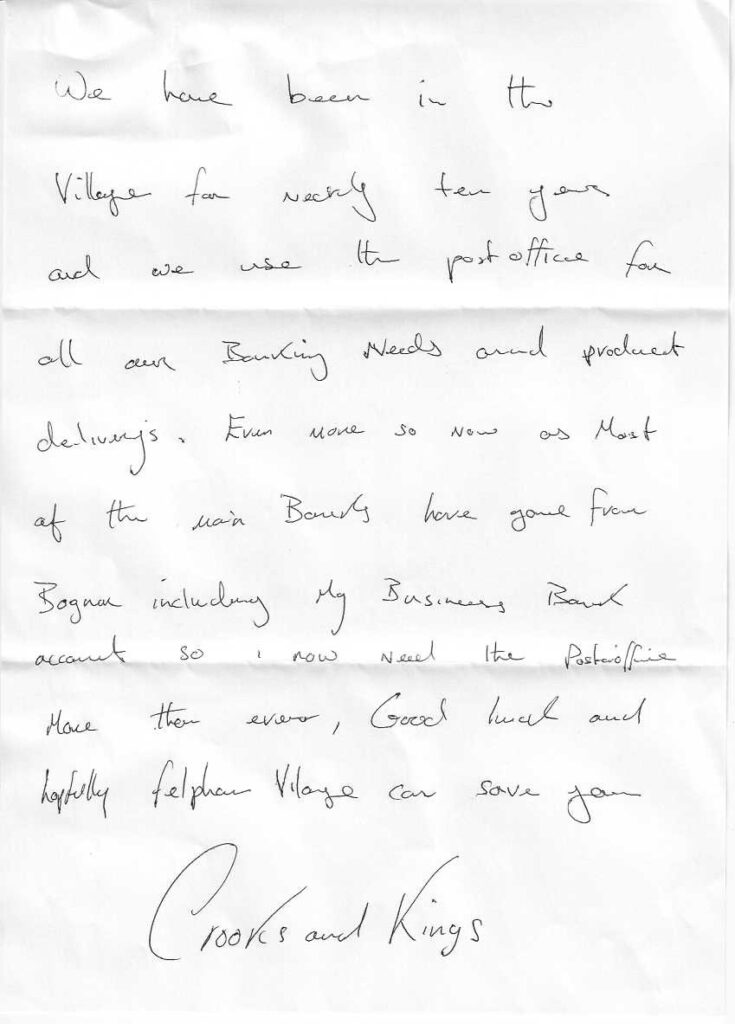 We have been in the
Village for nearly ten years
and we use the post office for
all our Banking Needs and product
delivery's. Even more so now as Most
of the main Banks have gone from
Bognor including My Business Bank
account so i now need the Post office
More then ever, Good luck and
hopfully felpham Vilage can save you
Crooks and Kings